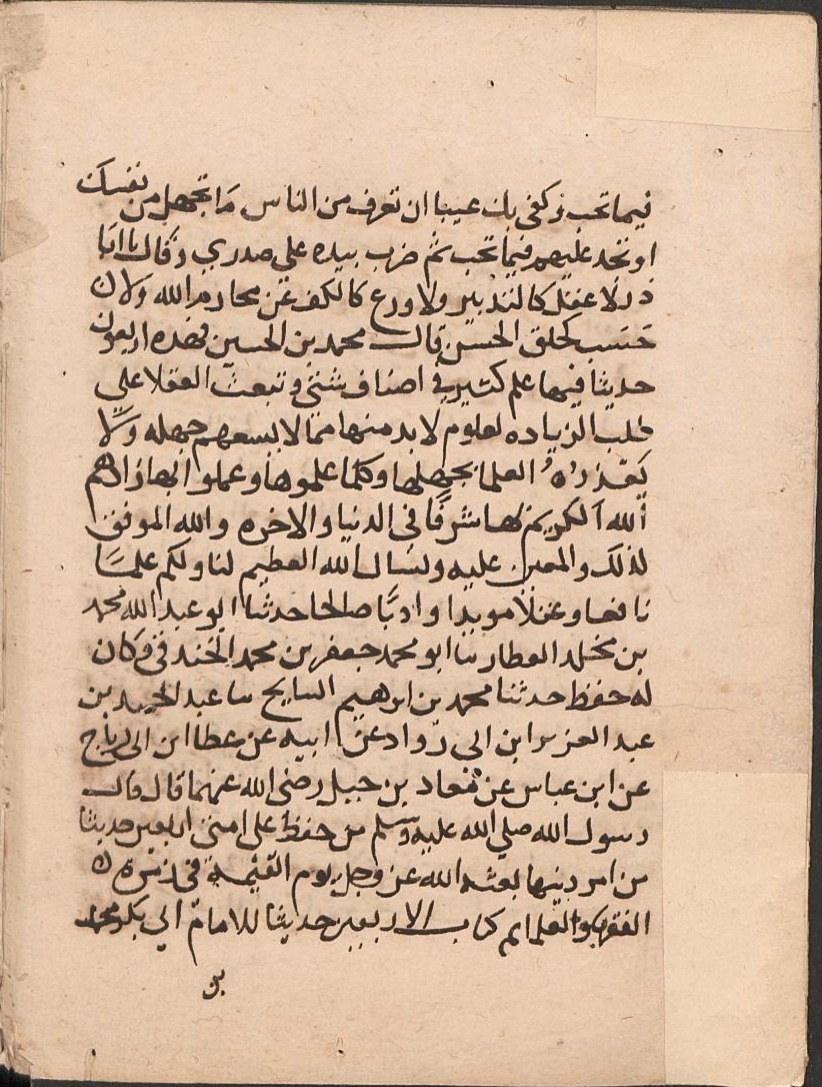 فيما تحب وكفى بك عيبا ان تعرف من الناس ما تجهل من نفسك
او تجد عليهم فيما تحب ثم ضرب بيده على صدري وقال يا ابا
ذر لا عقل كالتدبير ولا ورع كالكف عن محارم الله ولا
حسب كحلق الحسن قال محمد بن الحسين فهذه اربعون
حديثا فيها علم كثير في اصناف شتى وتبعث العقلا على
طلب الزياده لعلوم لا بد منها مما لا يسعهم جهله ولا
يعذرهم العلما بجهلها وكلما علموها وعملوا بها زادهم
الله الكريم بها شرفا في الدنيا والاخره والله الموفق
لذلك والمعين عليه ونسال الله العظيم لنا ولكم علما
نافعا وعقلا مويدا وادبا صالحا حدثنا ابو عبد الله محمد
بن مخلد العطار ثنا ابو محمد جعفر بن محمد الخندقي وكان
له حفظ حدثنا محمد بن ابرهيم السايح ثنا عبد المجيد بن
عبد العزيز ابن ابي رواد عن ابيه عن عطا ابن ابي رباح
عن ابن عباس عن معاذ بن جبل رضي الله عنهما قال قال
رسول الله صلي الله عليه وسلم من حفظ على امتي اربعين حديثا
من امر دينها بعثه الله عز وجل يوم القيمة في زمرة
الفقها والعلما تم كتاب الاربعين حديثا للامام ابي بكر محمد
بن